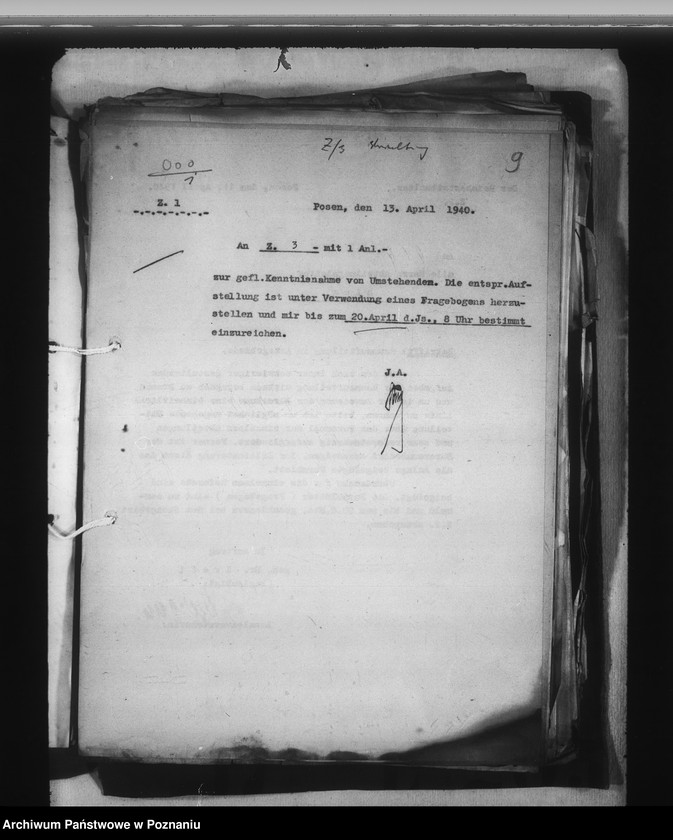 000
1
Z/3
9
Z. 1
Posen, den 13. April 1940.
An Z. 3 - mit 1 Anl.-
zur gefl.Kenntnisnahme von Umstehendem. Die entspr.Auf-
stellung ist unter Verwendung eines Fragebogens herzu-
stellen und mir bis zum 20.April d.Js., 8 Uhr bestimmt
einzureichen.
J.A.
Archiwum Państwowe w Poznaniu